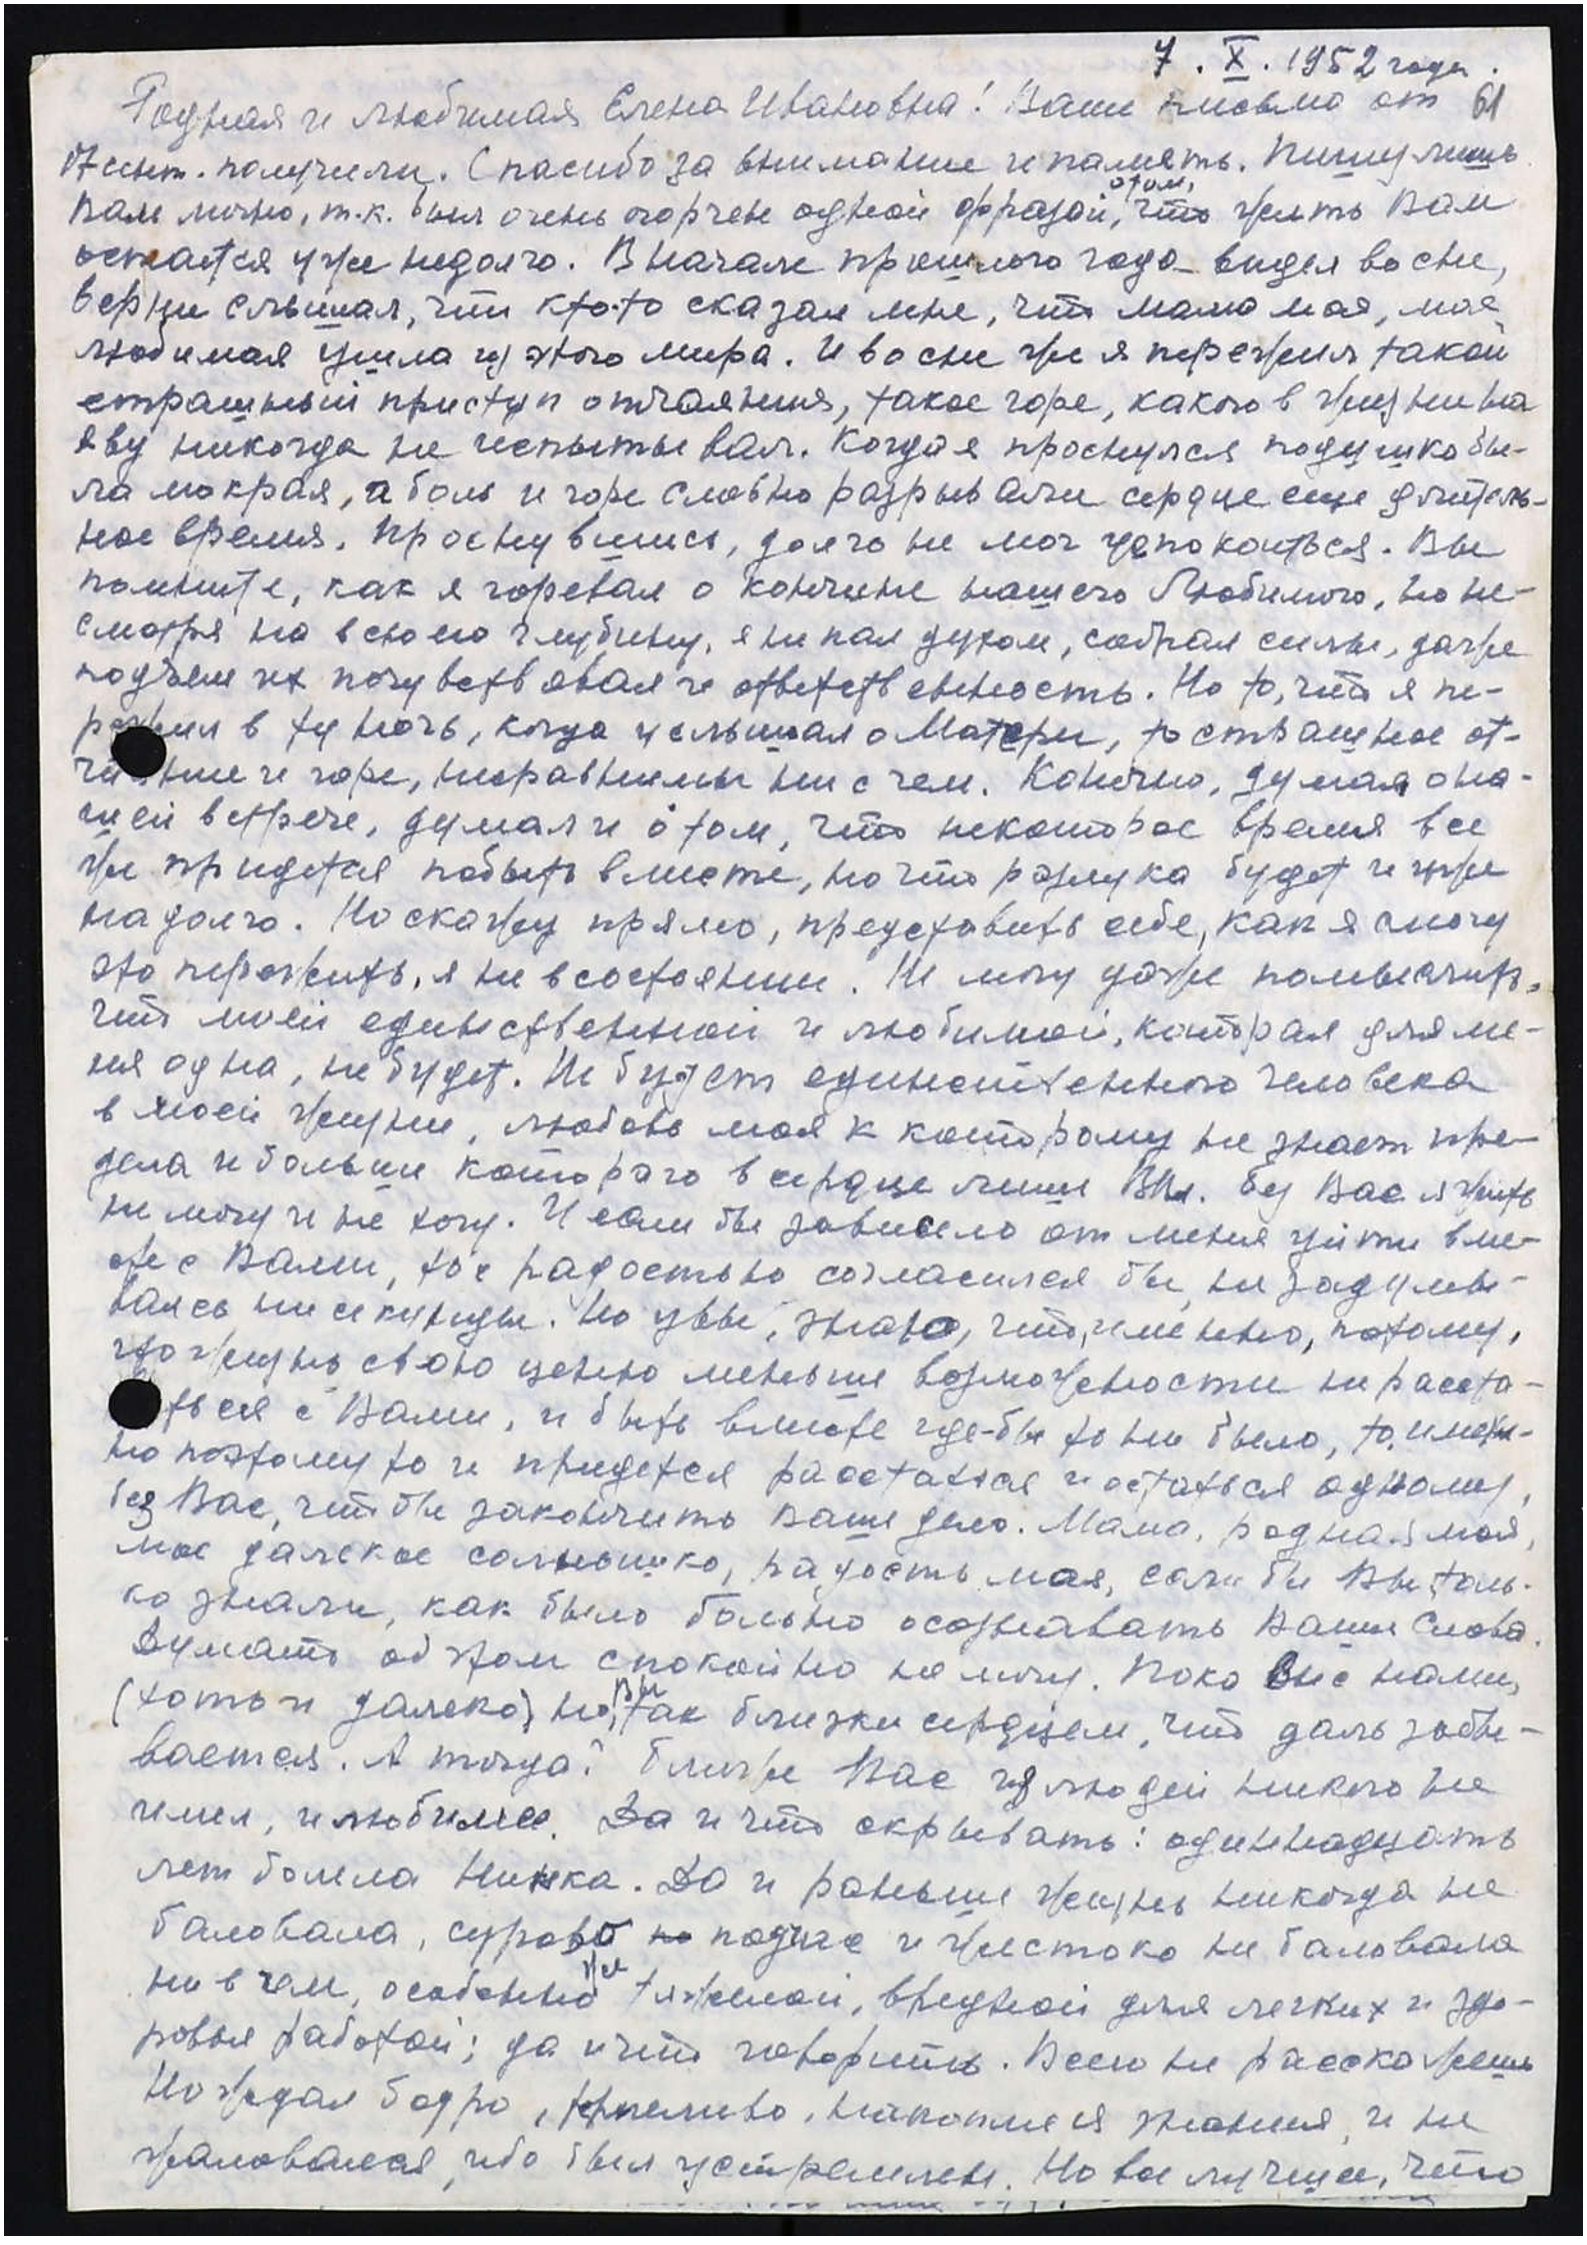 7. X. 1952 года.
Родная и любимая Елена Ивановна! Ваше письмо от 61
17 сент. получили. Спасибо за внимание и память. Пишу лишь
Вам лично, т.к. был очень огорчен одной фразой, о том, что жить Вам
остается уже недолго. В начале прошлого года видел во сне,
верне слышал, что кто-то сказал мне, что мама моя, моя
любимая ушла из этого мира. И во сне же я пережил такой
страшный приступ отчаяния, такое горе, какого в жизни на
яву никогда не испытывал. Когда я проснулся подушка бы-
ла мокрая, а боль и горе словно разрывали сердце еще длитель-
ное время. Проснувшись, долго не мог успокоиться. Вы
помните, как я горевал о кончине нашего Любимого, но не-
смотря на всю его глубину, я не пал духом, собрал силы, даже
подъем их почувствовал и ответственность. Но то, что я пе-
режил в ту ночь, когда услышал о Матери, то страшное от-
чаяние и горе, несравнимы ни с чем. Конечно, думая о на-
шей встрече, думал и о том, что некоторое время все
же придется побыть вместе, но что разлука будет и уже
надолго. Но скажу прямо, представить себе, как я смогу
это пережить, я не в состоянии. Не могу даже помыслить,
что моей единственной и любимой, которая для ме-
ня одна, не будет. Не будет единственного человека
в моей жизни, любовь моя к которому не знает пре-
дела и больше которого в сердце лишь Вл. Без Вас я жить
не могу и не хочу. И если бы зависело от меня уйти вме-
сте с Вами, то с радостью согласился бы, не задумы-
ваясь ни секунды. Но увы, знаю, что, именно, потому,
что жизнь свою ценю меньше возможности не расста-
ться с Вами, и быть вместе где-бы то ни было, то, имен-
но поэтому то и придется расстаться и остаться одному,
без Вас, чтобы закончить Ваше дело. Мама, родная моя,
мое далекое солнышко, радость моя, если бы Вы толь-
ко знали, как было больно осознавать Ваши Слова.
Думать об этом спокойно не могу. Пока Вы с нами,
(хоть и далеко), но Вы так близки сердцем, что даль забы-
вается. А тогда? Ближе Вас из людей никого не
имел, и любимее. Да и что скрывать: одиннадцать
лет болела Нинка. Да и раньше жизнь никогда не
баловала, сурово но подчас и жестоко не баловала
ни в чем, особенно же тяжелой, вредной для легких и здо-
ровья работой; да и что говорить. Всего не расскажешь
Но ждал бодро, терпеливо, накопляя знания, и не
жаловался, ибо был устремлен. Но все лучшее, что